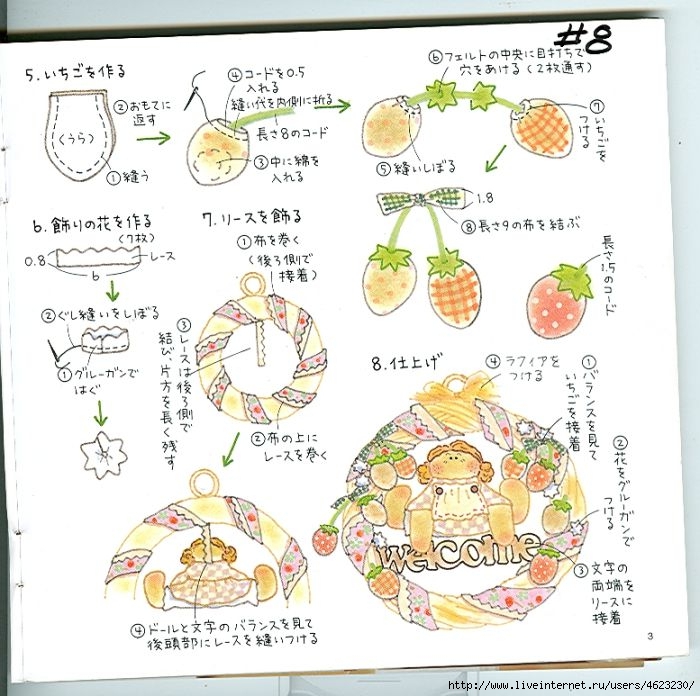 #8
5.いちごを作る
(うら)
②おもてに
返す
①縫う
④コードを0.5
入れる
縫い代を内側に折る
長さ8のコード
③中に綿を
入れる
⑥フェルトの中央に目打ちで
穴をあける(2枚通す)
⑦いちごを
つける
⑤縫いしぼる
1.8
⑧長さ9の布を結ぶ
長さ
1.5のコード
6.飾りの花を作る
(7枚)
0.8
レース
6
②ぐし縫いをしぼる
①グルーガンで
はぐ
7.リースを飾る
①布を巻く
(後ろ側で
接着)
③レースは後ろ側で
結び、片方を長く残す
②布の上に
レースを巻く
④ドールと文字のバランスを見て
後頭部にレースを縫いつける
8.仕上げ
④ラフィアを
つける
①バランスを見て
いちごを接着
②花をグルーガンで
つける
welcome
③文字の
両端を
リースに
接着
3
http://www.liveinternet.ru/users/4623230/